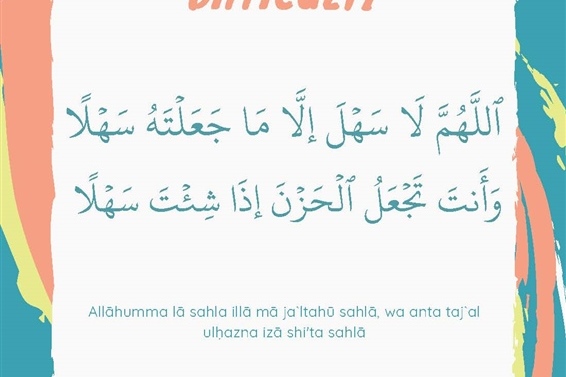 DIFFICULTY
ٱللَّهُمَّ لَا سَهْلَ إِلَّا مَا جَعَلْتَهُ سَهْلًا
وَأَنتَ تَجْعَلُ ٱلْحَزْنَ إِذَا شِئْتَ سَهْلًا
Allāhumma lā sahla illā mā ja`ltahū sahlā, wa anta taj`al
ulḥazna izā shi'ta sahlā